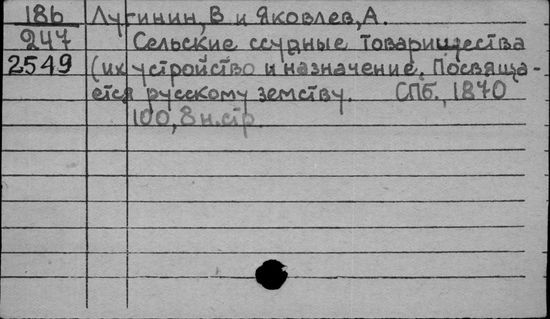 186 Лугинин, В и Яковлев, А.
247 Сельские ссудные товарищества
2549 (их устройство и назначение. Посвяща-
ется русскому земству. СПб., 1870
100, 8 н.стр.